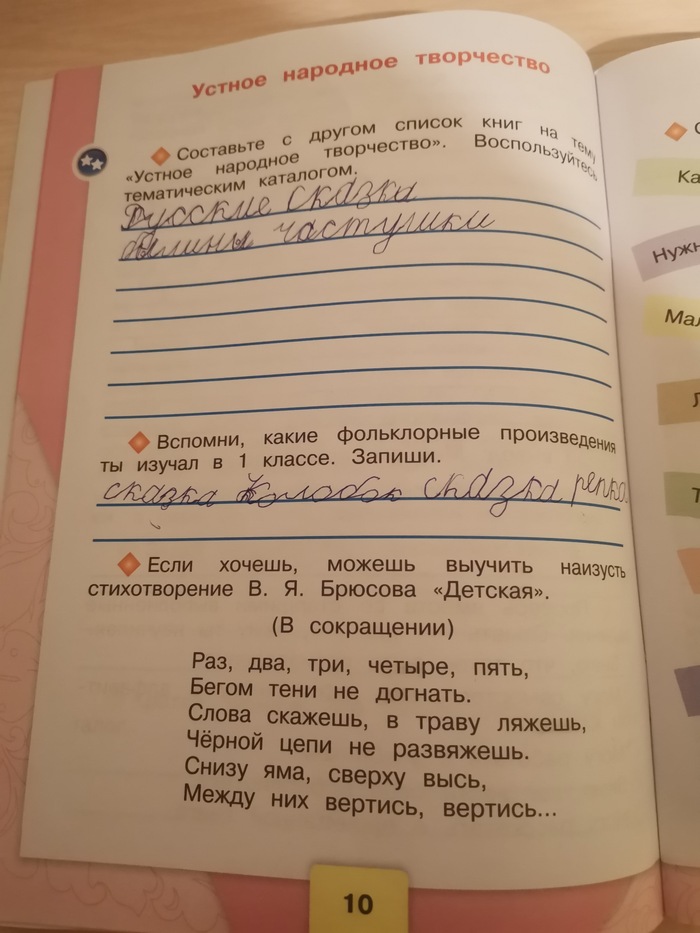 Устное народное творчество
Составьте с другом список книг на тему
«Устное народное творчество». Воспользуйтесь
тематическим каталогом.
Русские сказка
былины частушки
Вспомни, какие фольклорные произведения
ты изучал в 1 классе. Запиши.
сказка Колобок сказка репка
Если хочешь, можешь выучить наизусть
стихотворение В. Я. Брюсова «Детская».
(В сокращении)
Раз, два, три, четыре, пять,
Бегом тени не догнать.
Слова скажешь, в траву ляжешь,
Чёрной цепи не развяжешь.
Снизу яма, сверху высь,
Между них вертись, вертись...
10
Ка
Нужн
Мал